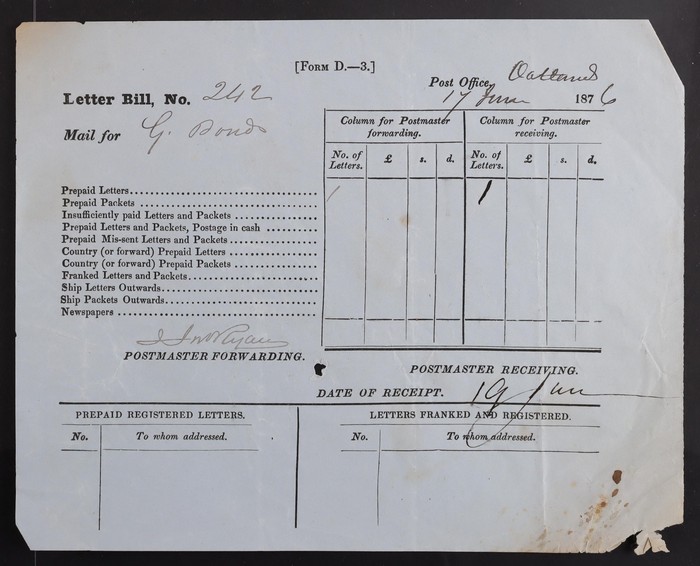 [FORM D.—3.]
Post Office, Oatlands
Letter Bill, No. 242
17 June 1876
Mail for G. Ponds
Column for Postmaster forwarding.
Column for Postmaster receiving.
No. of Letters. £ s. d. No. of Letters. £ s. d.
Prepaid Letters 1 1
Prepaid Packets
Insufficiently paid Letters and Packets
Prepaid Letters and Packets, Postage in cash
Prepaid Mis-sent Letters and Packets
Country (or forward) Prepaid Letters
Country (or forward) Prepaid Packets
Franked Letters and Packets
Ship Letters Outwards
Ship Packets Outwards
Newspapers
POSTMASTER FORWARDING.
POSTMASTER RECEIVING.
DATE OF RECEIPT. 19 June
PREPAID REGISTERED LETTERS.
LETTERS FRANKED AND REGISTERED.
No. To whom addressed. No. To whom addressed.